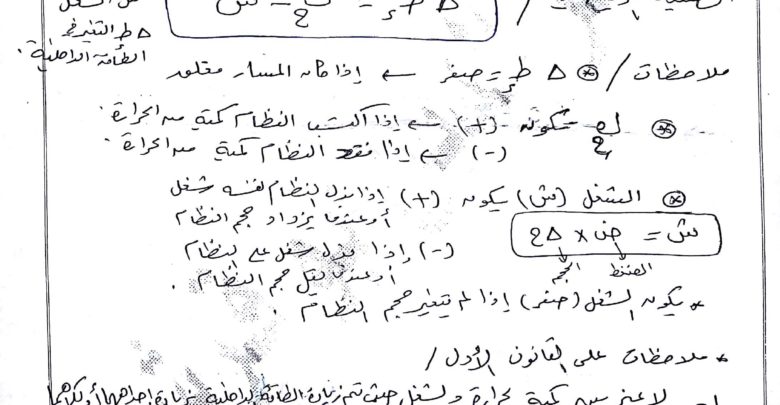 Δ ط د =
Δ ط التغير في
الطاقة الداخلية .
ملاحظات / ⊛ Δ ط د = صفر ← إذا كان المسار مغلق
⊛ ك ح تكون (+) ← إذا اكتسب النظام كمية من الحرارة .
(-) ← إذا فقد النظام كمية من الحرارة
⊛ الشغل (ش) يكون (+) إذا بذل النظام نفسه شغل
أو عندما يزداد حجم النظام
ش = ض × Δ ح
الضغط الحجم
(-) إذا بذل شغل على النظام
أو عندما يقل حجم النظام .
* يكون الشغل (صفر) إذا لم يتغير حجم النظام .
* ملاحظات على القانون الأول /
كمية حرارة والشغل حيث تتم زيادة الطاقة الداخلية بزيادة إحداهما أو كلاهما